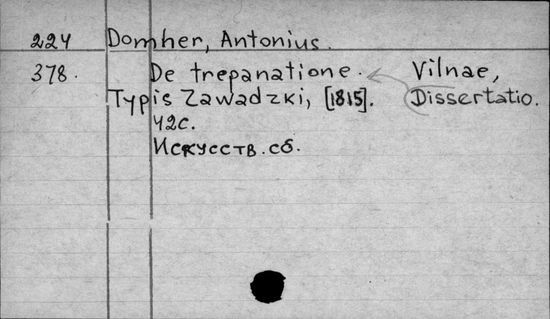 224 Domher, Antonius.
378. De trepanatione. Vilnae,
Typis Zawadzki, [1815]. Dissertatio.
42с.
Искусств. сб.